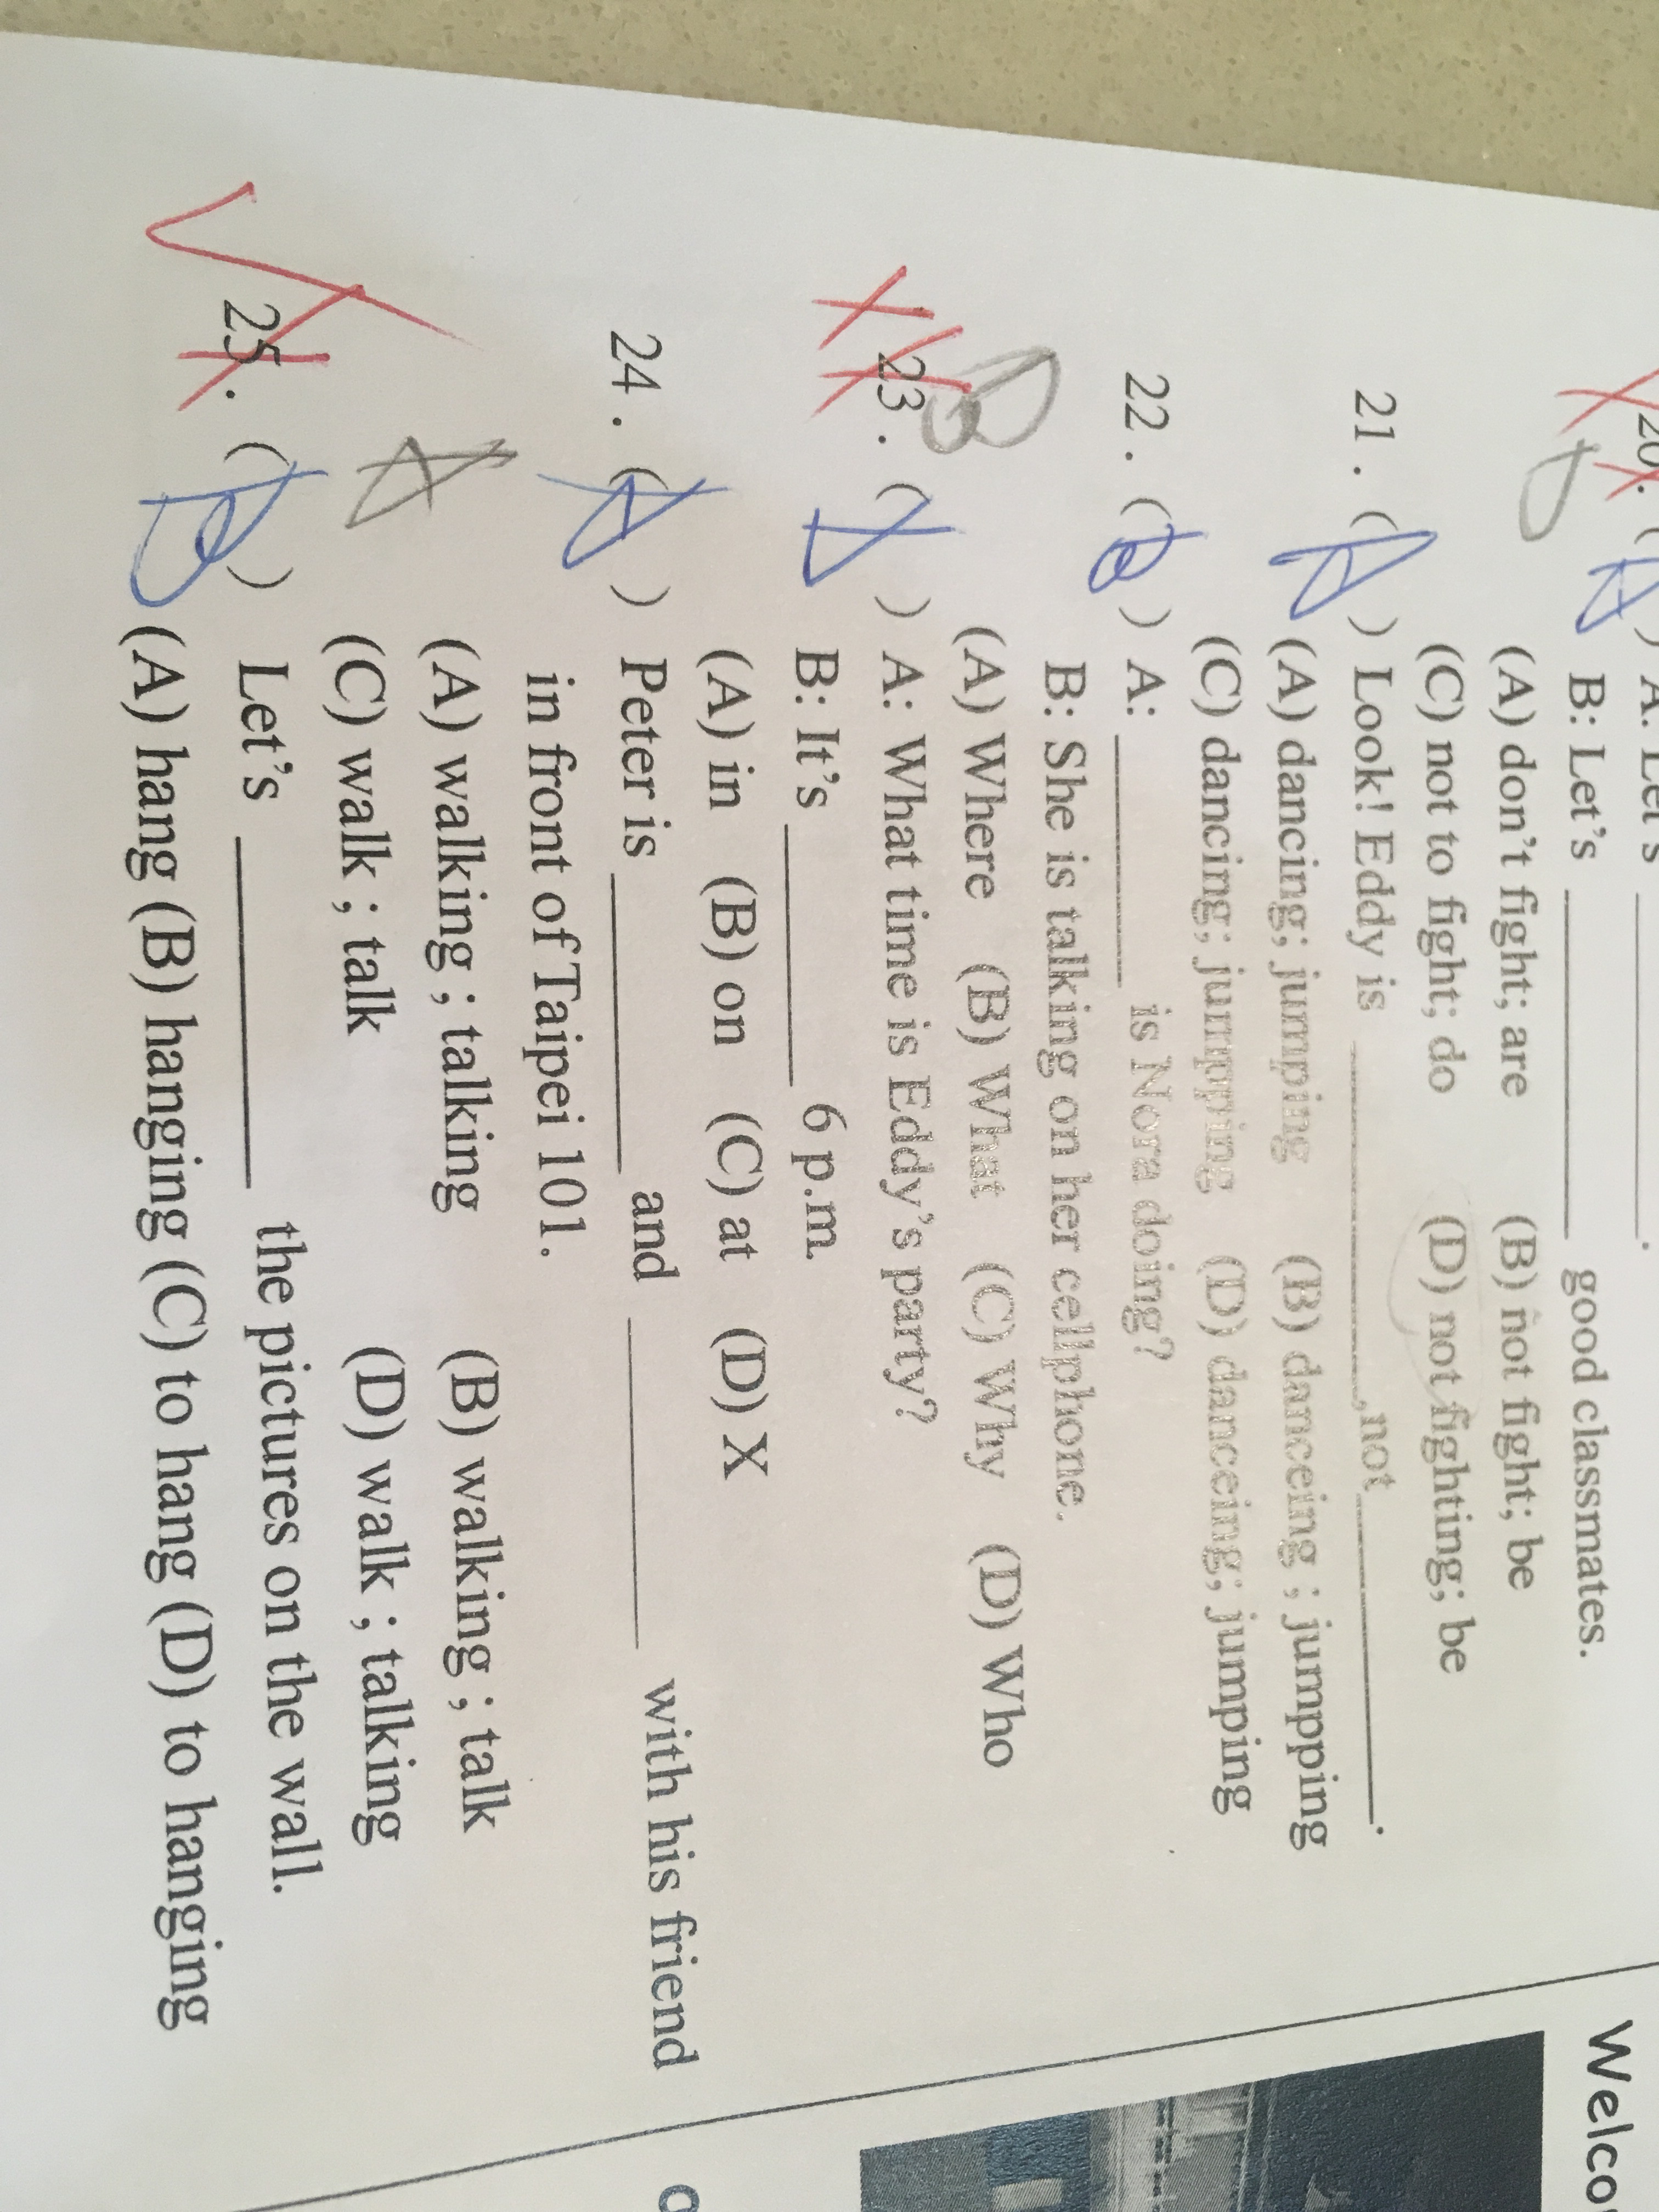 20. ( A ) A: Let's ________.
B: Let's ________ good classmates.
(A) don't fight; are (B) not fight; be
(C) not to fight; do (D) not fighting; be
21. ( A ) Look! Eddy is ________, not ________.
(A) dancing; jumping (B) danceing ; jumpping
(C) dancing; jumpping (D) danceing; jumping
22. ( B ) A: ________ is Nora doing?
B: She is talking on her cellphone.
(A) Where (B) What (C) Why (D) Who
B
23. ( A ) A: What time is Eddy's party?
B: It's ________ 6 p.m.
(A) in (B) on (C) at (D) X
24. ( A ) Peter is ________ and ________ with his friend
in front of Taipei 101.
(A) walking ; talking (B) walking ; talk
(C) walk ; talk (D) walk ; talking
A
25. ( B ) Let's ________ the pictures on the wall.
(A) hang (B) hanging (C) to hang (D) to hanging
Welco